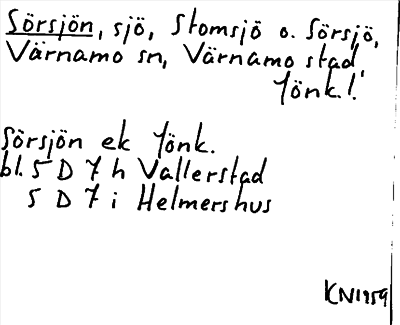 Sörsjön, sjö, Stomsjö o. Sörsjö,
Värnamo sn, Värnamo stad,
Jönk.l.
Sörsjön ek Jönk.
bl. 5 D 7 h Vallerstad
5 D 7 i Helmershus
KN1959